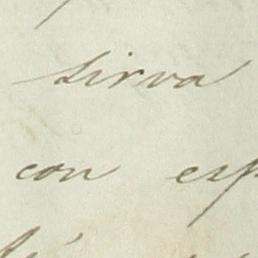 sirva
con esp